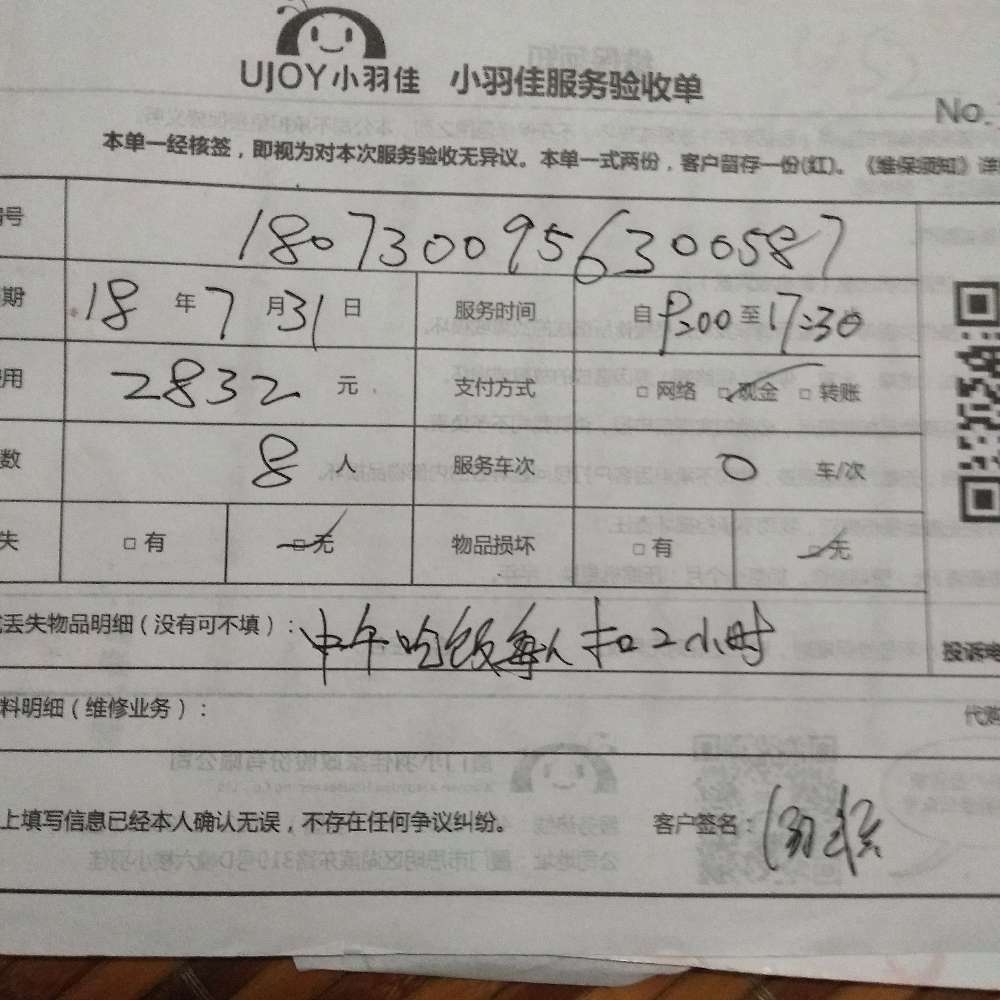 UJOY小羽佳 小羽佳服务验收单
No.
本单一经核签，即视为对本次服务验收无异议。本单一式两份，客户留存一份(红)。《维保须知》详
号 1807300956300587
期 18 年 7 月 31 日 服务时间 自 9:00 至 17:30
用 2832 元 支付方式 □ 网络 □ 现金 □ 转账
数 8 人 服务车次 0 车/次
失 □ 有 □ 无 物品损坏 □ 有 无
丢失物品明细（没有可不填）： 中午吃饭每人扣2小时
投诉电
料明细（维修业务）： 代购
上填写信息已经本人确认无误，不存在任何争议纠纷。 客户签名：